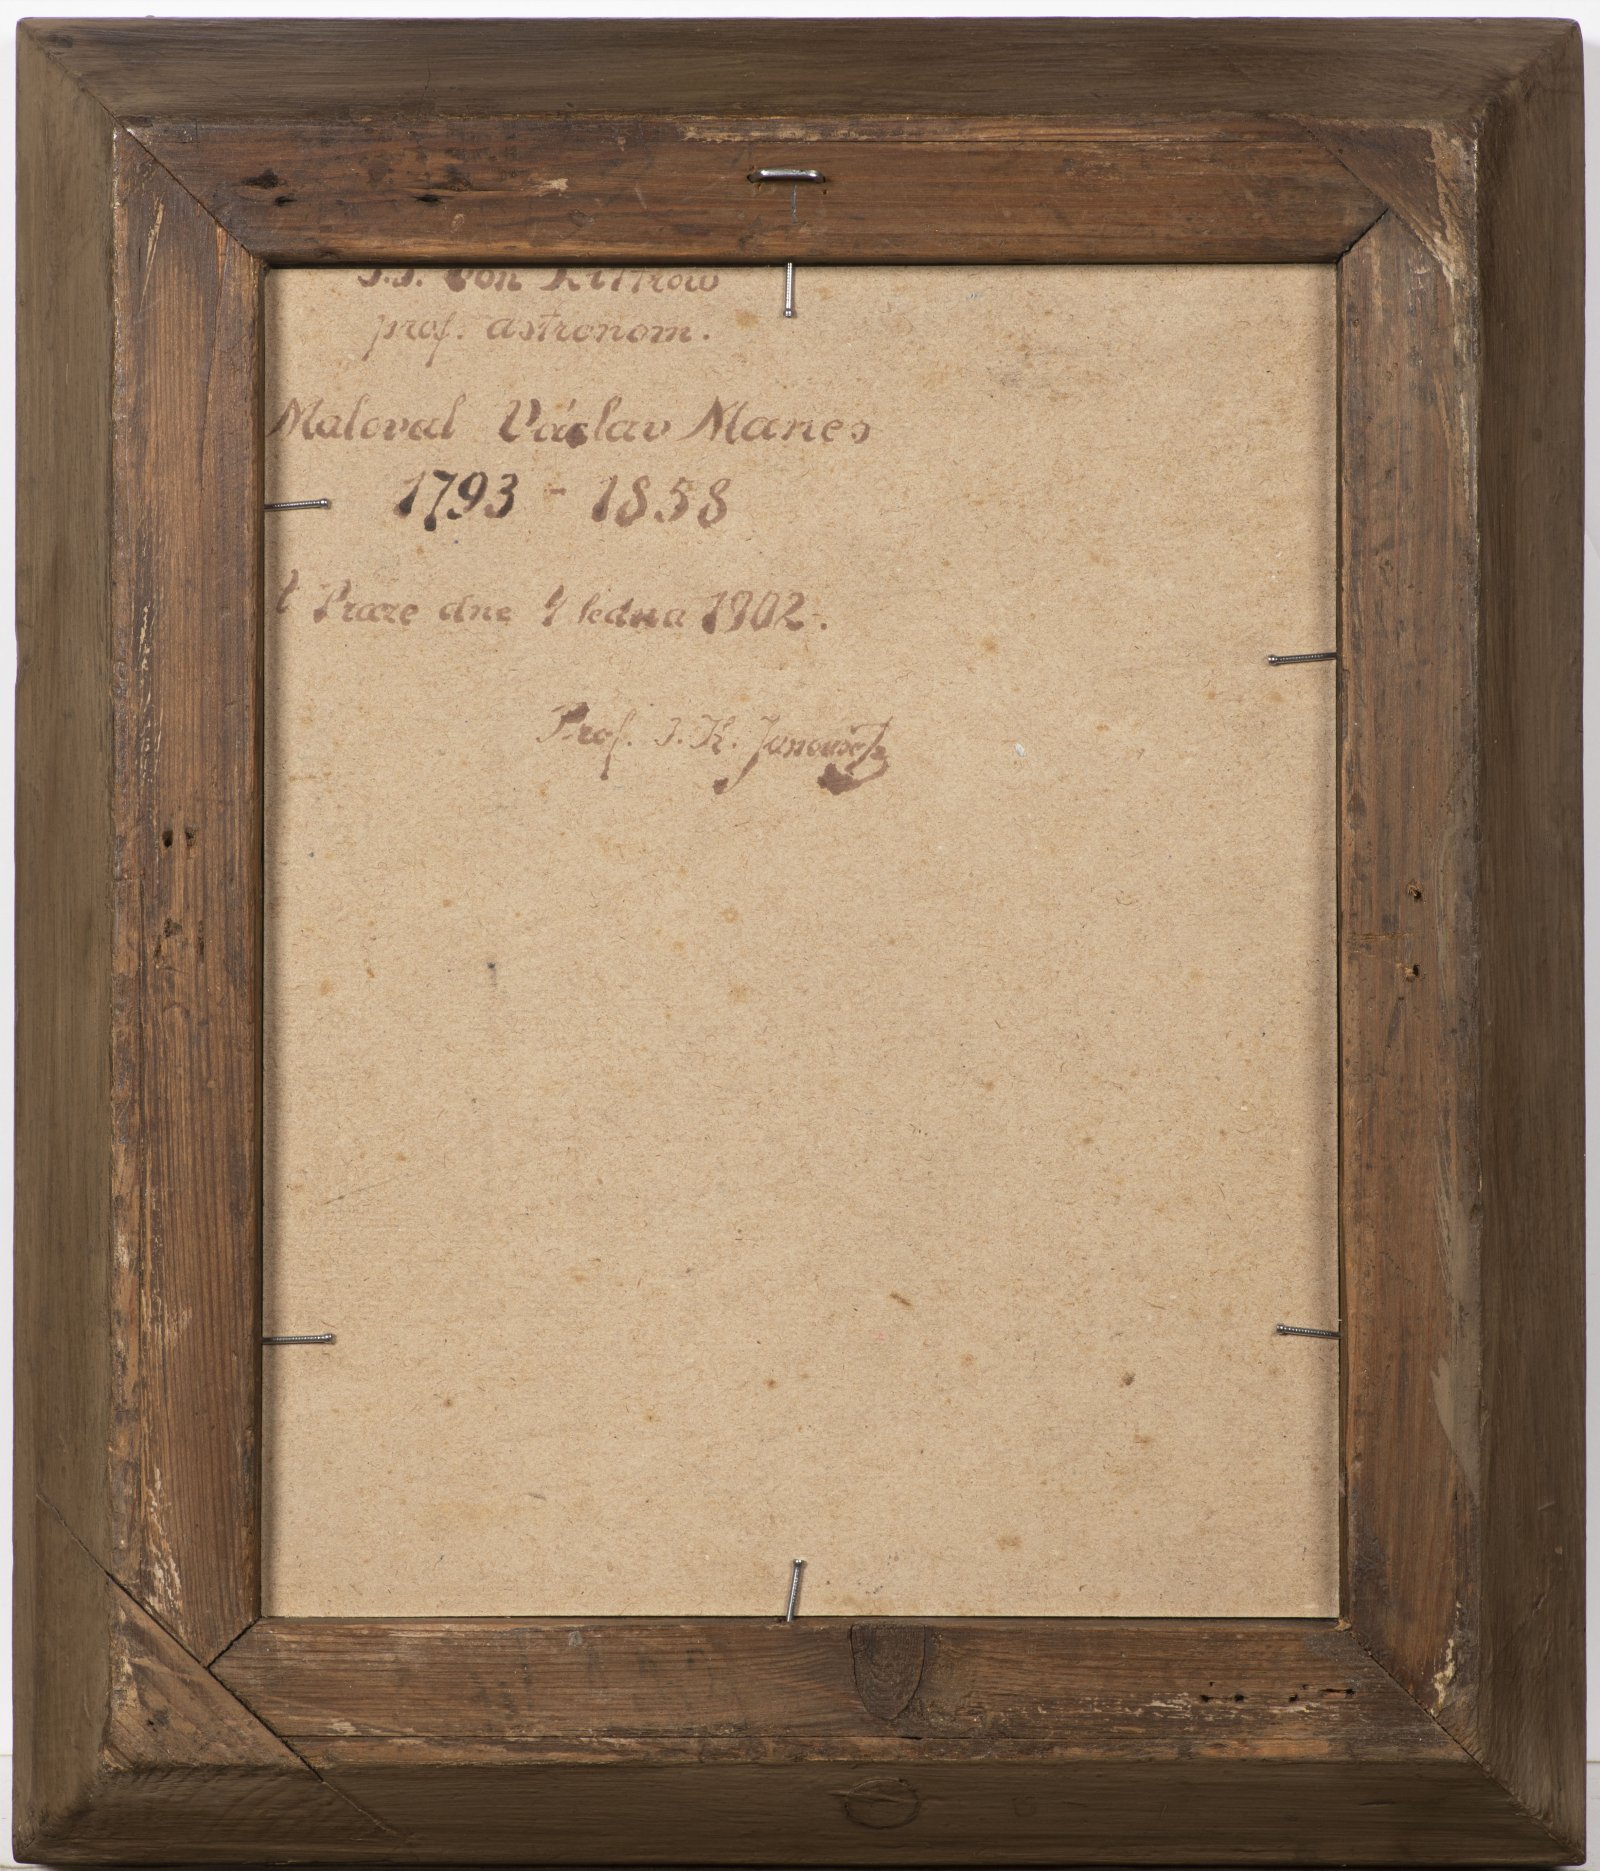 J.J. von Littrow
prof. astronom.
Maloval Václav Manes
1793 - 1858
Praze dne 4 ledna 1902.
Prof. J. K. Janoušek